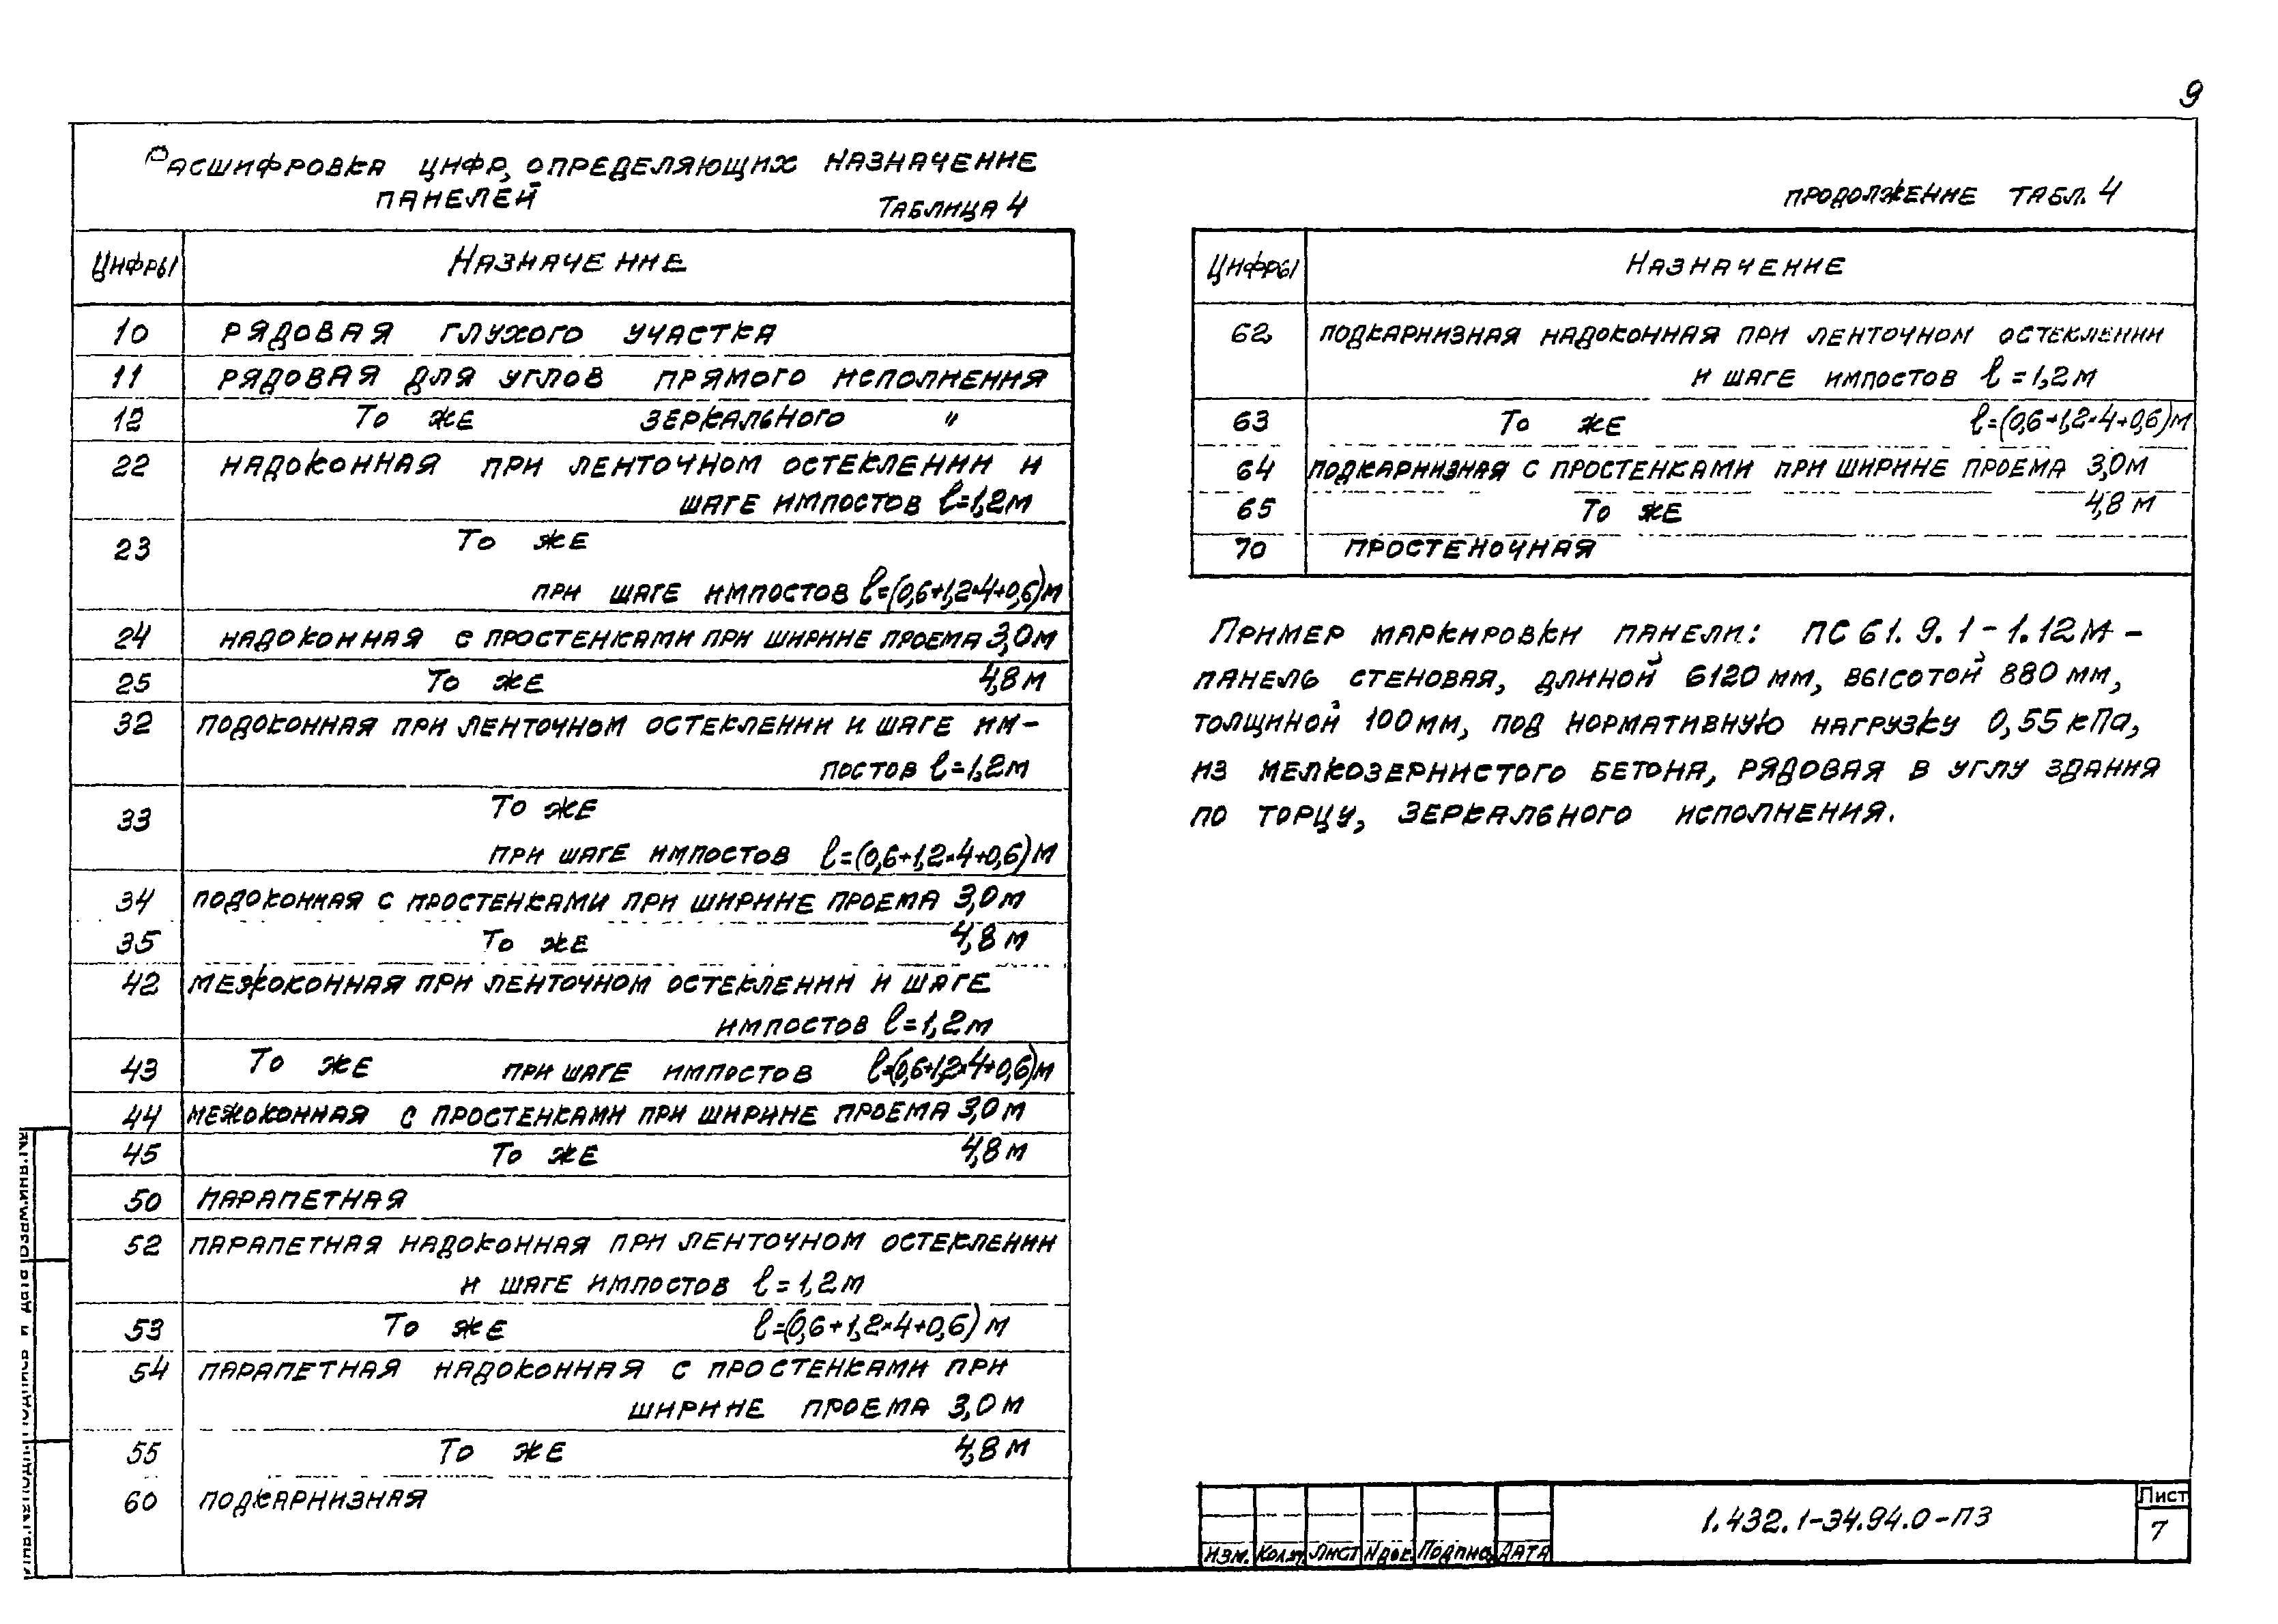 9
Расшифровка цифр, определяющих назначение
панелей
Таблица 4
Цифры Назначение
10 рядовая глухого участка
11 рядовая для углов прямого исполнения
12 То же зеркального "
22 надоконная при ленточном остеклении и
шаге импостов ℓ=1,2м
23 То же
при шаге импостов ℓ=(0,6+1,2×4+0,6)м
24 надоконная с простенками при ширине проема 3,0м
25 То же 4,8м
32 подоконная при ленточном остеклении и шаге им-
постов ℓ=1,2м
33 То же
при шаге импостов ℓ=(0,6+1,2×4+0,6)м
34 подоконная с простенками при ширине проема 3,0м
35 То же 4,8м
42 межоконная при ленточном остеклении и шаге
импостов ℓ=1,2м
43 То же при шаге импостов ℓ=(0,6+1,2×4+0,6)м
44 межоконная с простенками при ширине проема 3,0м
45 То же 4,8м
50 парапетная
52 парапетная надоконная при ленточном остеклении
и шаге импостов ℓ=1,2м
53 То же ℓ=(0,6+1,2×4+0,6)м
54 парапетная надоконная с простенками при
ширине проема 3,0м
55 То же 4,8м
60 подкарнизная
продолжение табл. 4
Цифры Назначение
62 подкарнизная надоконная при ленточном остеклении
и шаге импостов ℓ=1,2м
63 То же ℓ=(0,6+1,2×4+0,6)м
64 подкарнизная с простенками при ширине проема 3,0м
65 То же 4,8м
70 простеночная
Пример маркировки панели: ПС61.9.1-1.12М-
панель стеновая, длиной 6120мм, высотой 880мм,
толщиной 100мм, под нормативную нагрузку 0,55кПа,
из мелкозернистого бетона, рядовая в углу здания
по торцу, зеркального исполнения.
Изм. Кол.уч Лист Nдок. Подпись Дата
1.432.1-34.94.0-ПЗ
Лист
7